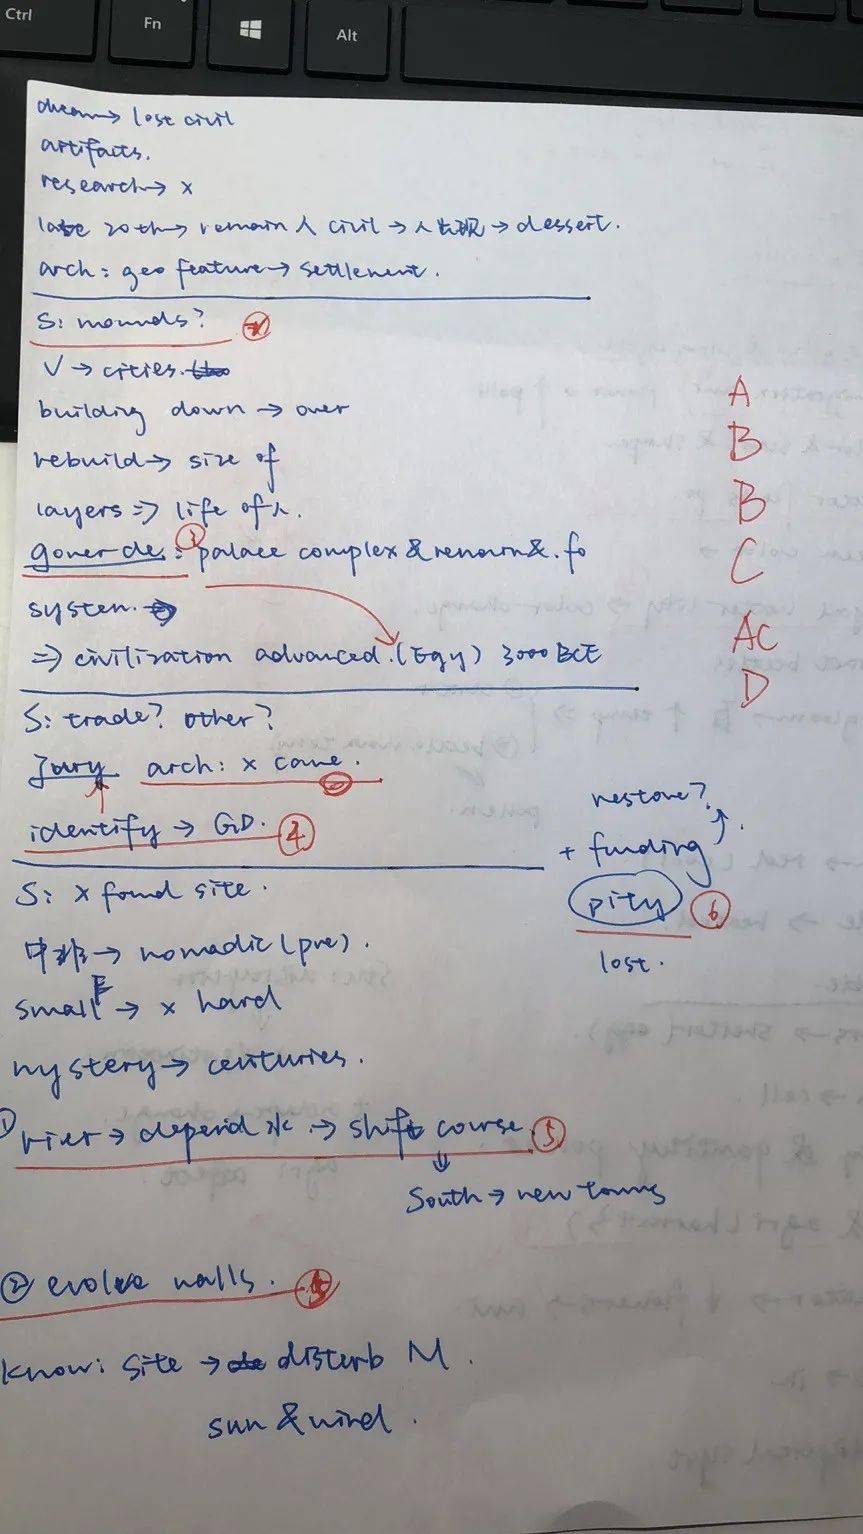 Ctrl
Fn
Alt
dream→ lost civil
artifacts.
research→ x
late 20th→ remain 人 civil → 人出现 → dessert.
arch: geo feature→ settlement.
S: mounds?
V → cities.
building down → over
rebuild→ size of
layers => life of 人.
goner de: ③ palace complex & renown &. fo
system.
=> civilization advanced. (Egy) 3000 BCE
S: trade? other?
arch: x came.
identify → GD. ④
S: x found site.
中非→ nomadic (pre).
small → x hard
mystery→ centuries.
① rier → depend 水 → shift course. ⑤
South → new towns
② evolve walls.
know: site → disterb M.
sun & wind.
A
B
B
C
AC
D
restore?
+ funding
pity ⑥
lost.